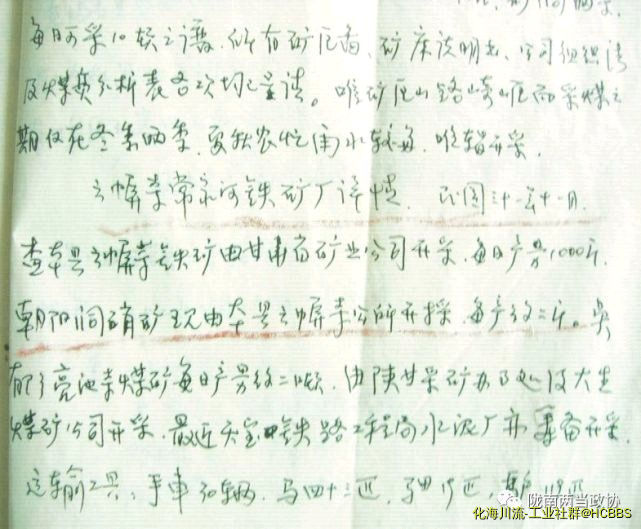 每日可采10吨之谱，所有矿区图、矿床说明书、公司组织法
及煤质分析表各次均已呈请。唯矿区山路崎岖而采煤之
期仅在冬春两季，夏秋农忙雨水较多，唯辍开采。
云屏寺常家河铁矿厂详情 民国三十一年十一月
查本县云屏寺铁矿由甘肃省矿业公司开采，每日产量1000斤，
朝阳洞硝矿现由本县云屏寺公所开採，每产约二斤。
亮池寺煤矿每日产量约二吨，由陕甘采矿办事处及大生
煤矿公司开采，最近天宝铁路工程局水泥厂亦筹备开采。
运输工具：手车 辆，马四十三匹，
陇南两当政协
化海川流-工业社群@HCBBS